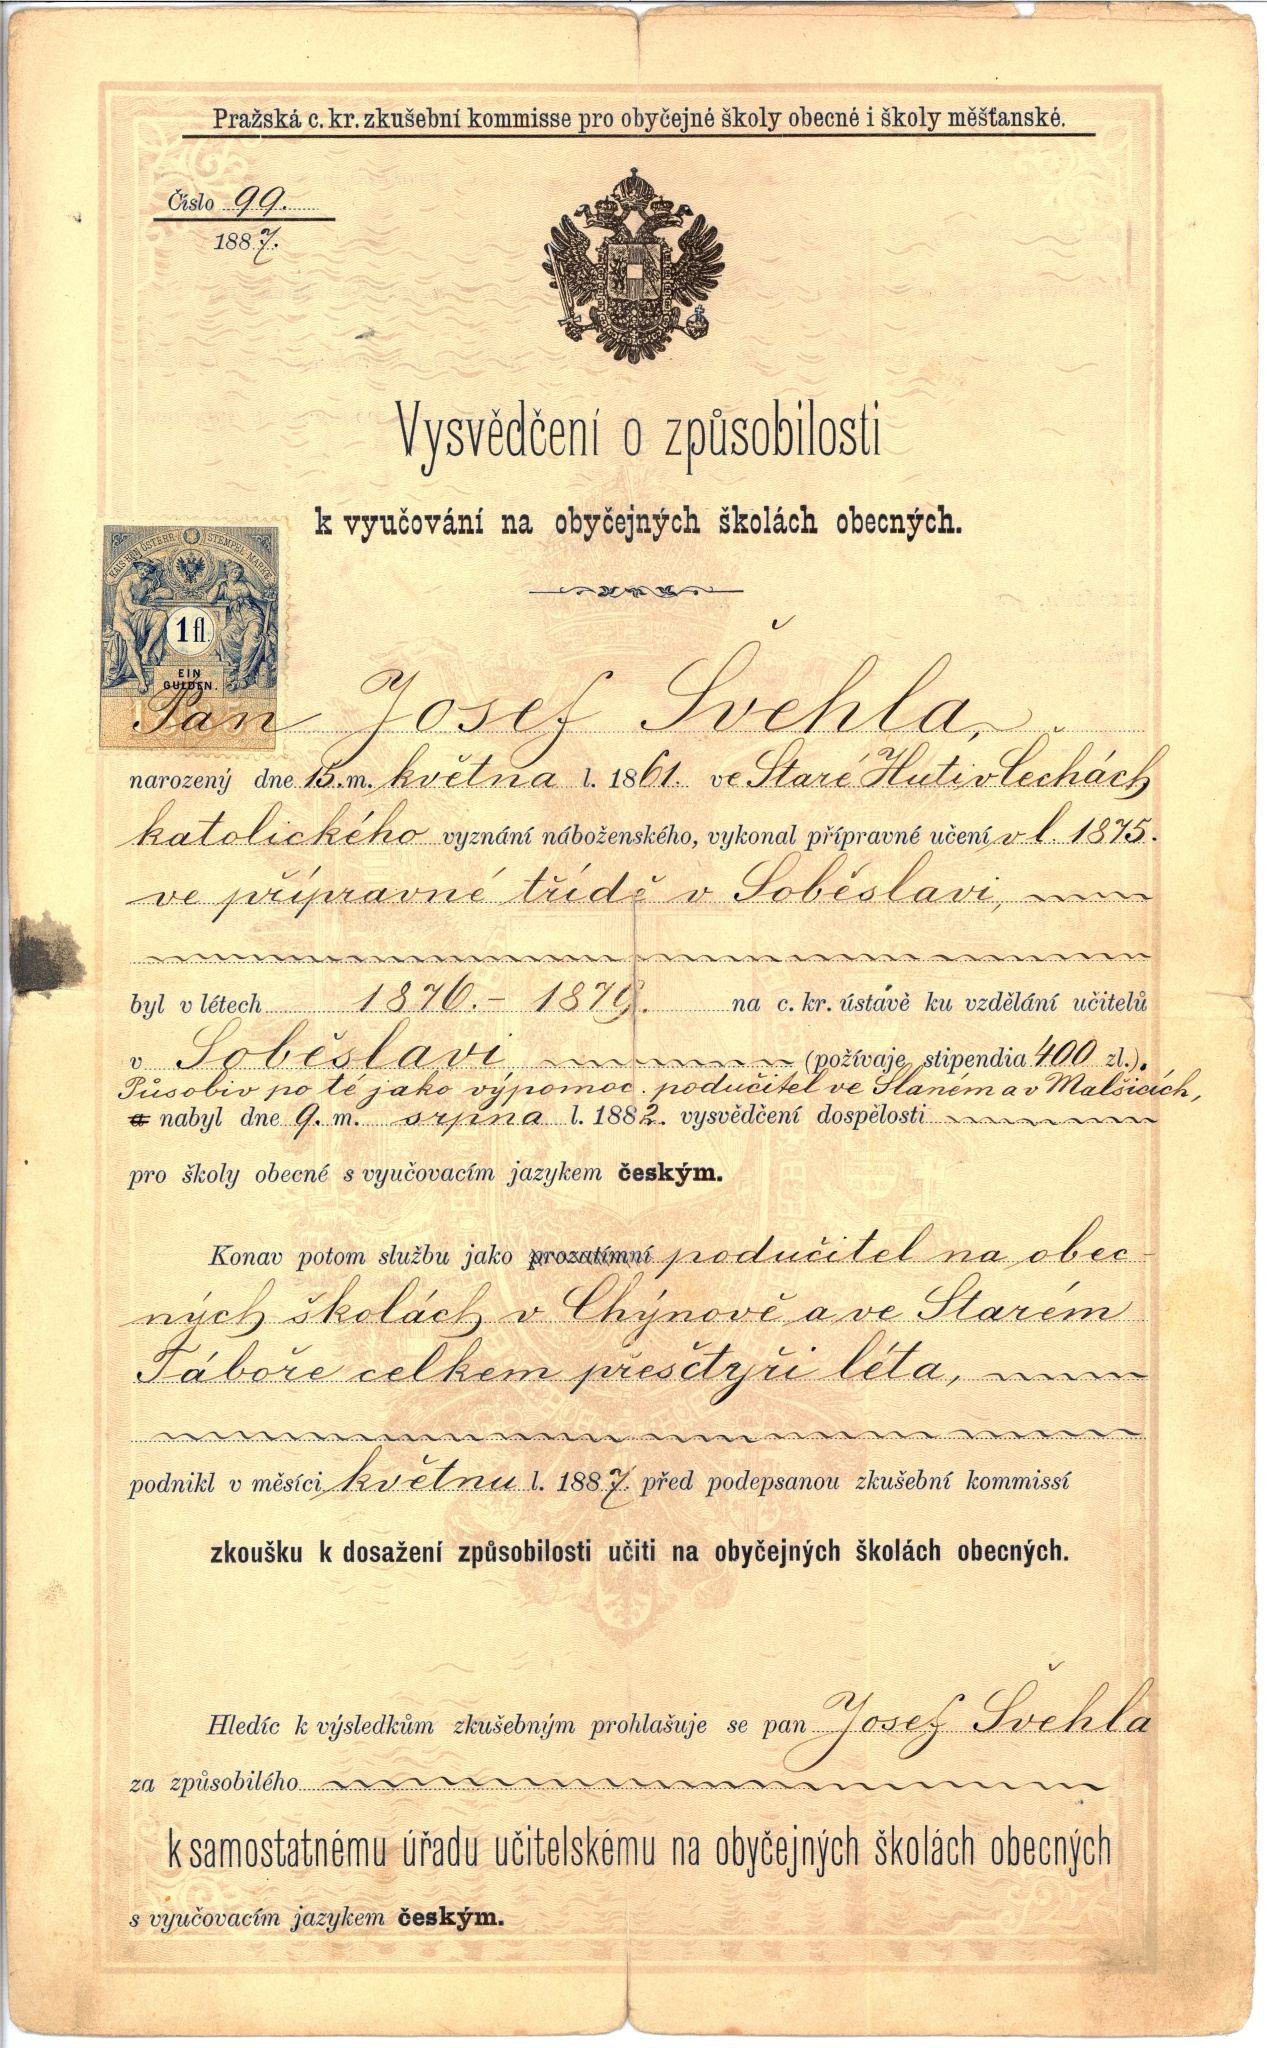 Pražská c. kr. zkušební kommisse pro obyčejné školy obecné i školy měšťanské.
Číslo 99.
1887.
Vysvědčení o způsobilosti
k vyučování na obyčejných školách obecných.
KAIS. KÖN. ÖSTERR. STEMPEL-MARKE
1 fl.
EIN
GULDEN.
Pan Josef Švehla,
narozený dne 15. m. května l. 1861. ve Staré Huti v Čechách
katolického vyznání náboženského, vykonal přípravné učení v l. 1875.
ve přípravné třídě v Soběslavi,
byl v létech 1876. – 1879. na c. kr. ústávě ku vzdělání učitelů
v Soběslavi (požívaje stipendia 400 zl.).
Působiv po té jako výpomoc. podučitel ve Slaném a v Malšicích,
a nabyl dne 9. m. srpna l. 1882. vysvědčení dospělosti
pro školy obecné s vyučovacím jazykem českým.
Konav potom službu jako prozatímní podučitel na obec-
ných školách v Chýnově a ve Starém
Táboře celkem přes čtyři léta,
podnikl v měsíci květnu l. 1887. před podepsanou zkušební kommissí
zkoušku k dosažení způsobilosti učiti na obyčejných školách obecných.
Hledíc k výsledkům zkušebným prohlašuje se pan Josef Švehla
za způsobilého
k samostatnému úřadu učitelskému na obyčejných školách obecných
s vyučovacím jazykem českým.